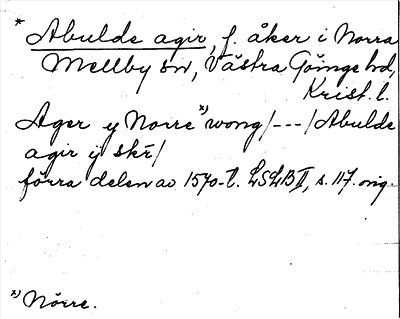 * Abulde agir, f. åker i Norra
Mellby sn, Västra Göinge hd,
Krist. l.
Ager y Norre x) wong/---/Abulde
agir ij skr̄/
förra delen av 1570-t. LSLB II, s. 117. orig.
x) Nörre.